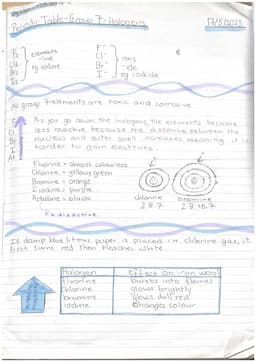 Periodic Table-Group 7-Halogens
17/5/2023
elements
-ine
eg iodine
F⁻
Cl⁻
Br⁻
I⁻
ions
-ide
eg iodide
All group 7 elements are toxic and corrosive
F
Cl
Br
I
At
As you go down the halogens, the elements become
less reactive because the distance between the
nucleus and outer shell increases meaning it is
harder to gain electrons.
Fluorine = almost colourless
Chlorine = yellow green
Bromine = orange
Iodine = purple
Astatine = black
chlorine
2.8.7
bromine
2.8.18.7
Radioactive
If damp blue litmus paper is placed in chlorine gas, it
first turns red then bleaches white.
Halogen
Effect on iron wool
fluorine
bursts into flames
chlorine
glows brightly
bromine
glows dull red
iodine
changes colour